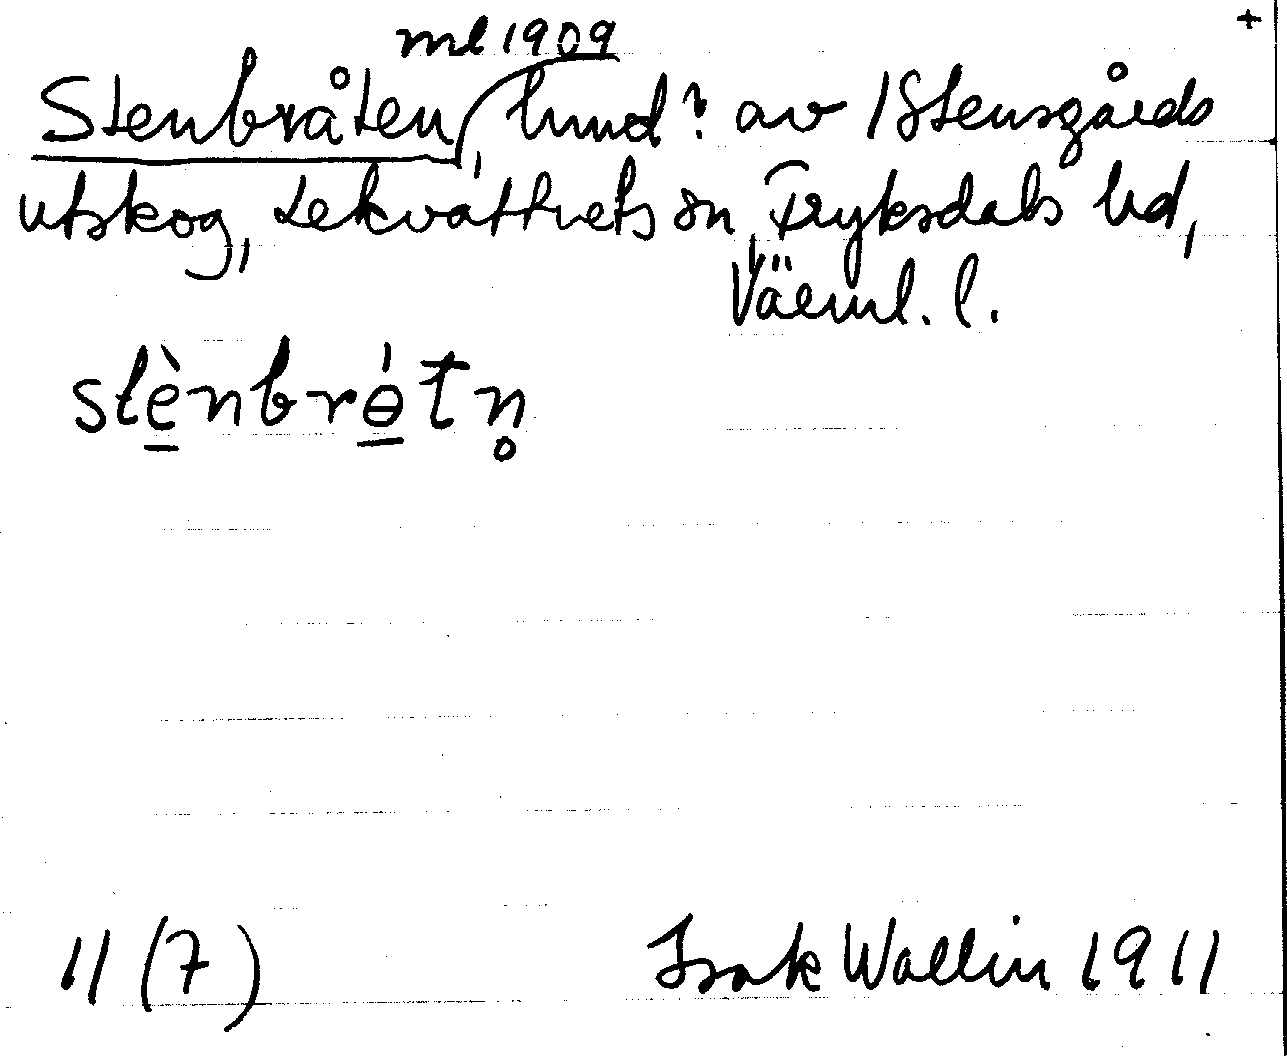 +
ml 1909
Stenbråten, lund? av 1 Stensgårds
utskog, Lekvattnets sn, Fryksdals hd,
Värml. l.
stènbrɵ́tn̥
11 (7) Isak Wallin 1911